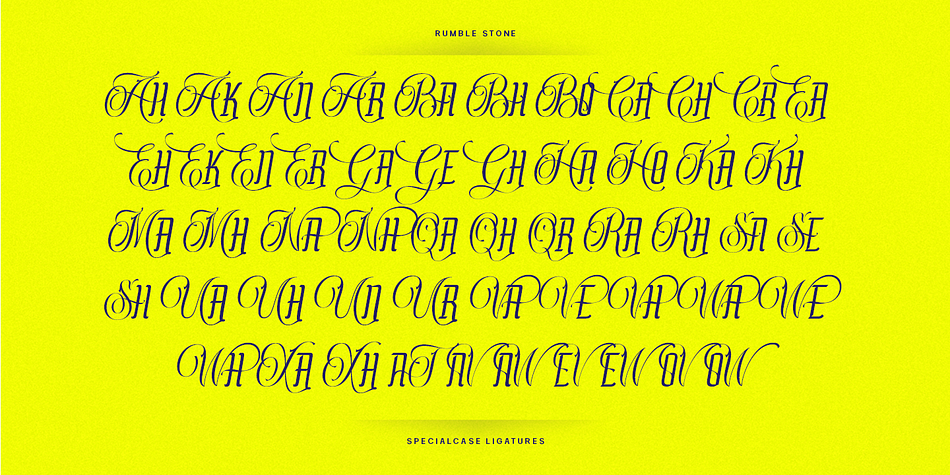 RUMBLE STONE
AH AK AN AR BA BH BO CA CH CR EA
EH EK EN ER GA GE GH HA HO KA KH
MA MH NA NH QA QH QR RA RH SA SE
SH UA UH UN UR VA VE VH WA WE
WH XA XH AT AV AW EV EW OV OW
SPECIALCASE LIGATURES